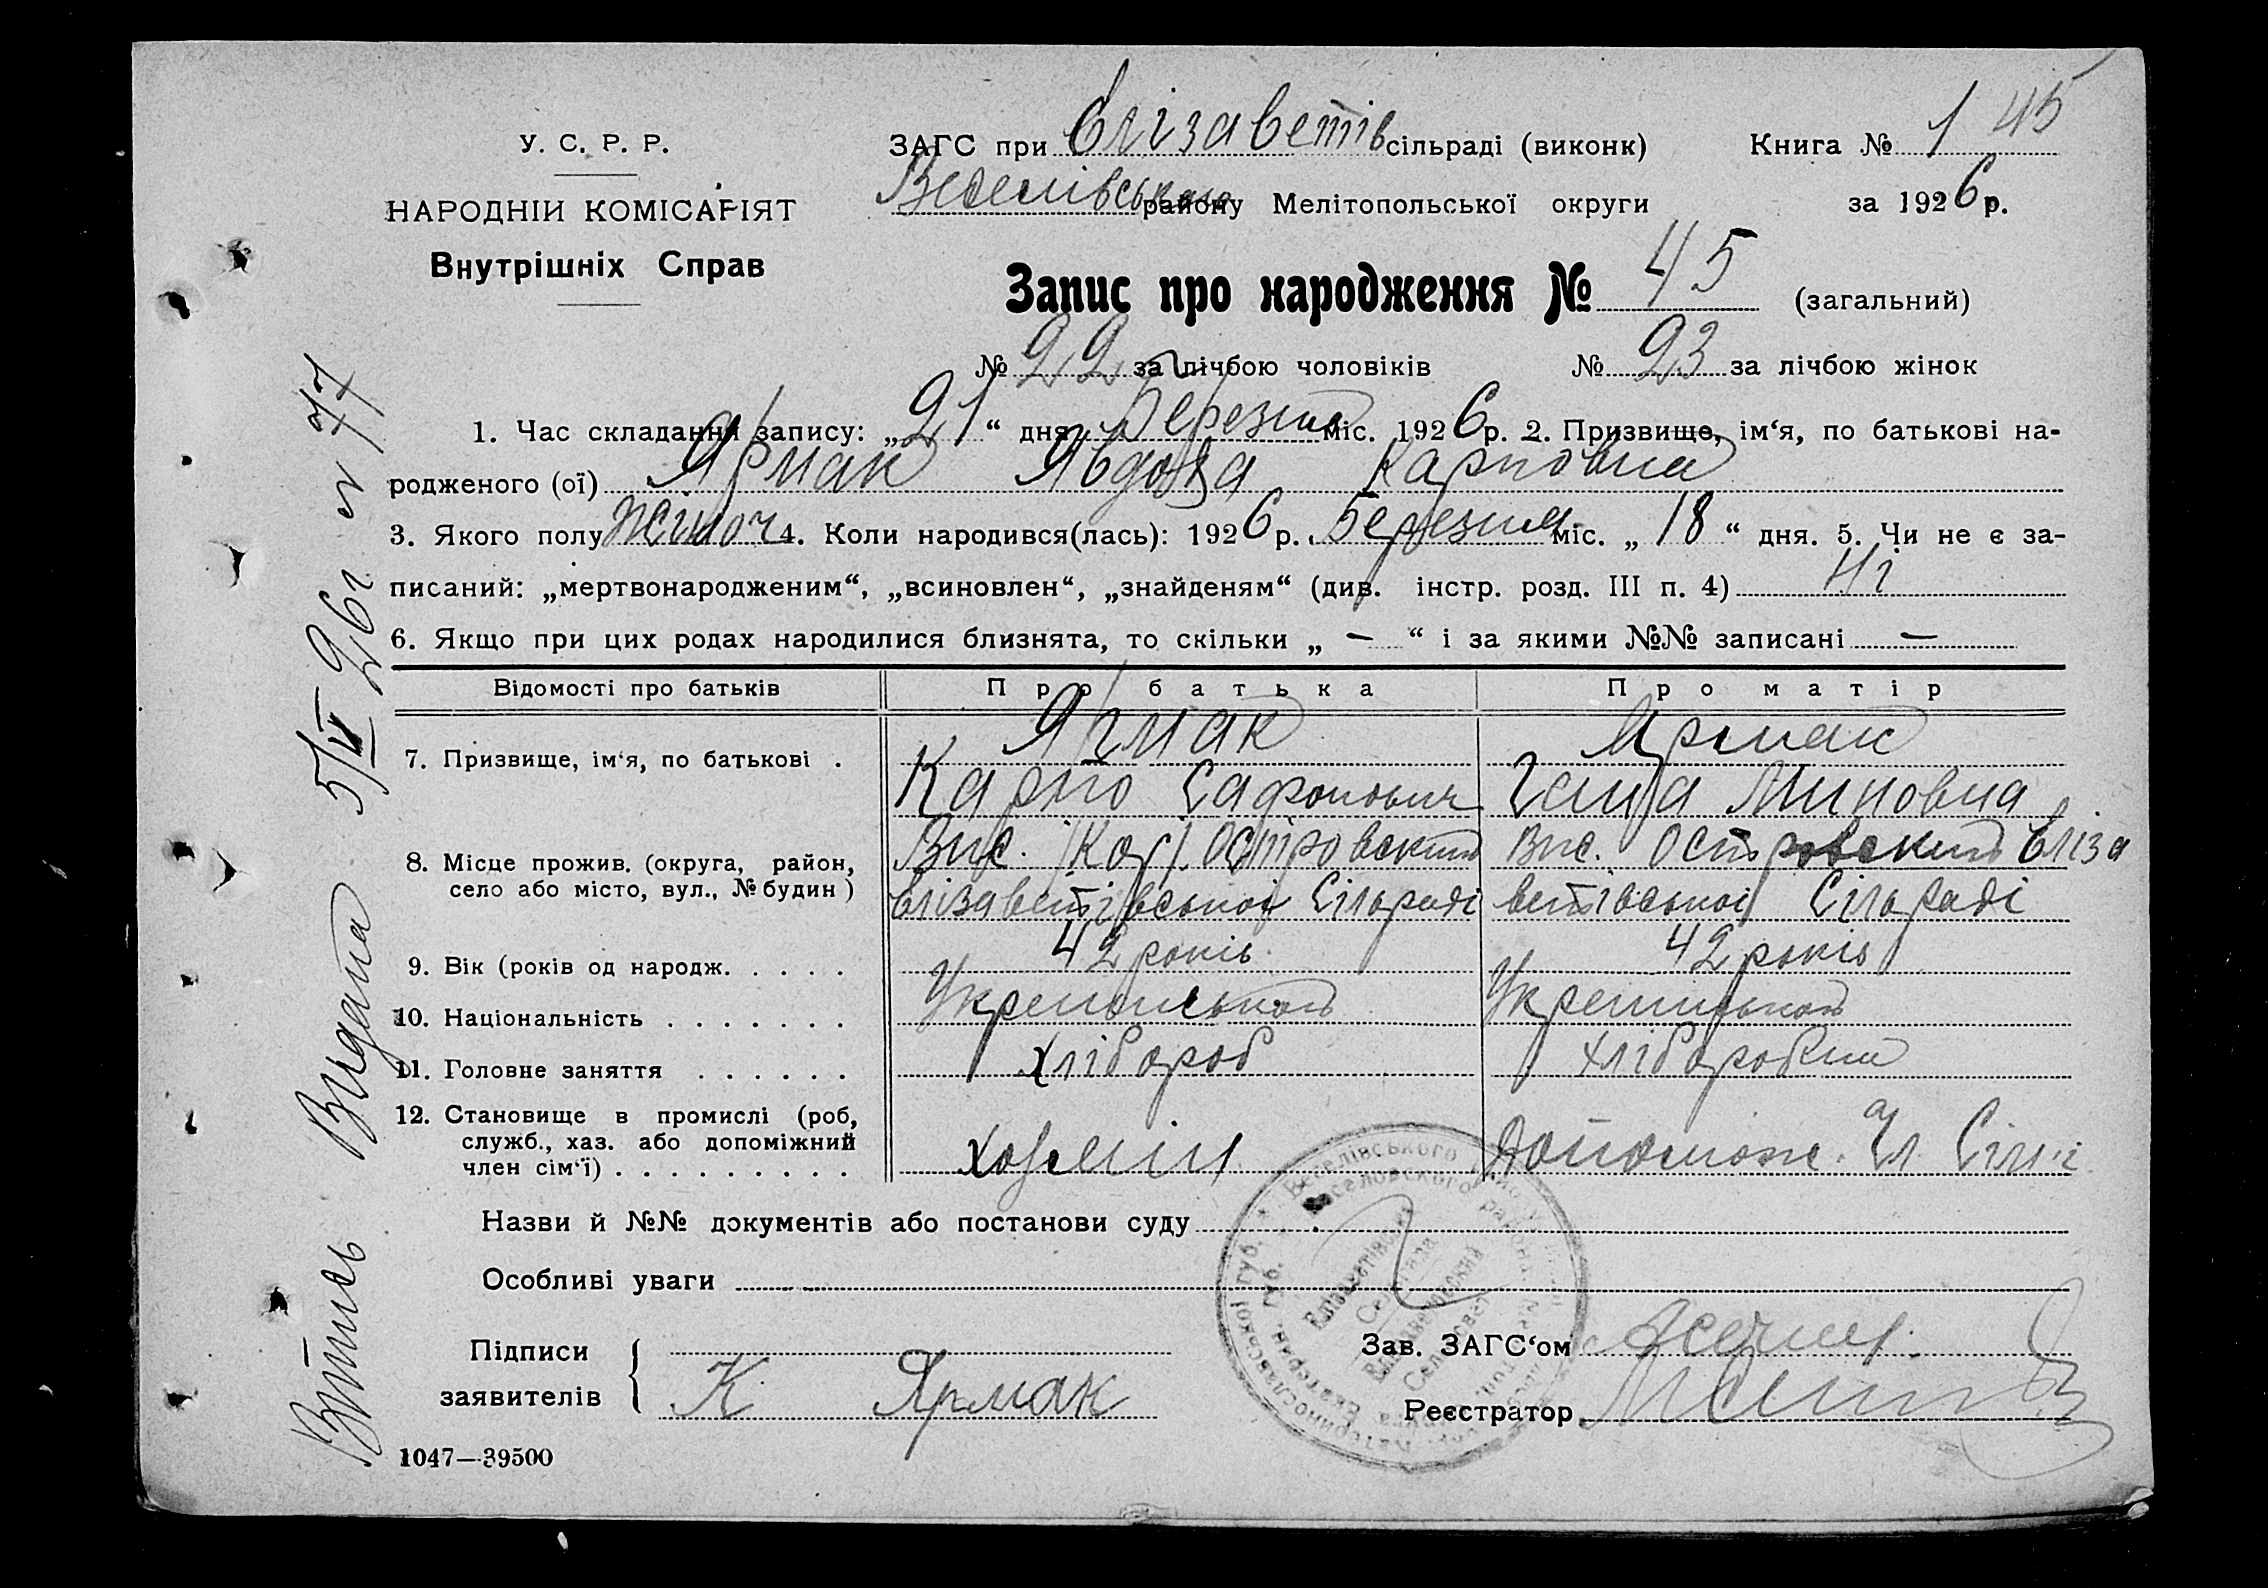 45
У. С. Р. Р.
ЗАГС при Єлізаветів сільраді (виконк) Книга № 1
НАРОДНІЙ КОМІСАРІЯТ
Веселівського району Мелітопольської округи за 1926 р.
Внутрішніх Справ
Запис про народження № 45 (загальний)
№ 22 за лічбою чоловіків № 23 за лічбою жінок
1. Час складання запису: „21“ дня Березня міс. 1926 р. 2. Призвище, ім‘я, по батькові на-
родженого (ої) Ярмак Явдоха Карповна
3. Якого полу жіноч 4. Коли народився(лась): 1926 р. Березня міс. „18“ дня. 5. Чи не є за-
писаний: „мертвонародженим“, „всиновлен“, „знайденям“ (див. інстр. розд. III п. 4) Ні
6. Якщо при цих родах народилися близнята, то скільки „ — “ і за якими №№ записані —
Відомості про батьків Про батька Про матір
7. Призвище, ім‘я, по батькові . Ярмак Ярмак
Карпо Сафонович Ганна Миновна
8. Місце прожив. (округа, район, село або місто, вул., № будин) Вис. Островский Вис. Островский Єліза
Єлізаветівськоі Сільраді ветівськоі Сільраді
9. Вік (років од народж. . . . . 42 років 42 років
10. Національність . . . . . . .
11. Головне заняття . . . . . . хлібороб
12. Становище в промислі (роб, служб., хаз. або допоміжний член сім‘ї) . . . . . . . . . Хозяїн Допомож. Чл. Сімї
Назви й №№ документів або постанови суду
Особливі уваги
Підписи заявителів К Ярмак
Зав. ЗАГС‘ом
Реєстратор
1047—39500
Витяг Видана 5/IV 26 г № 77